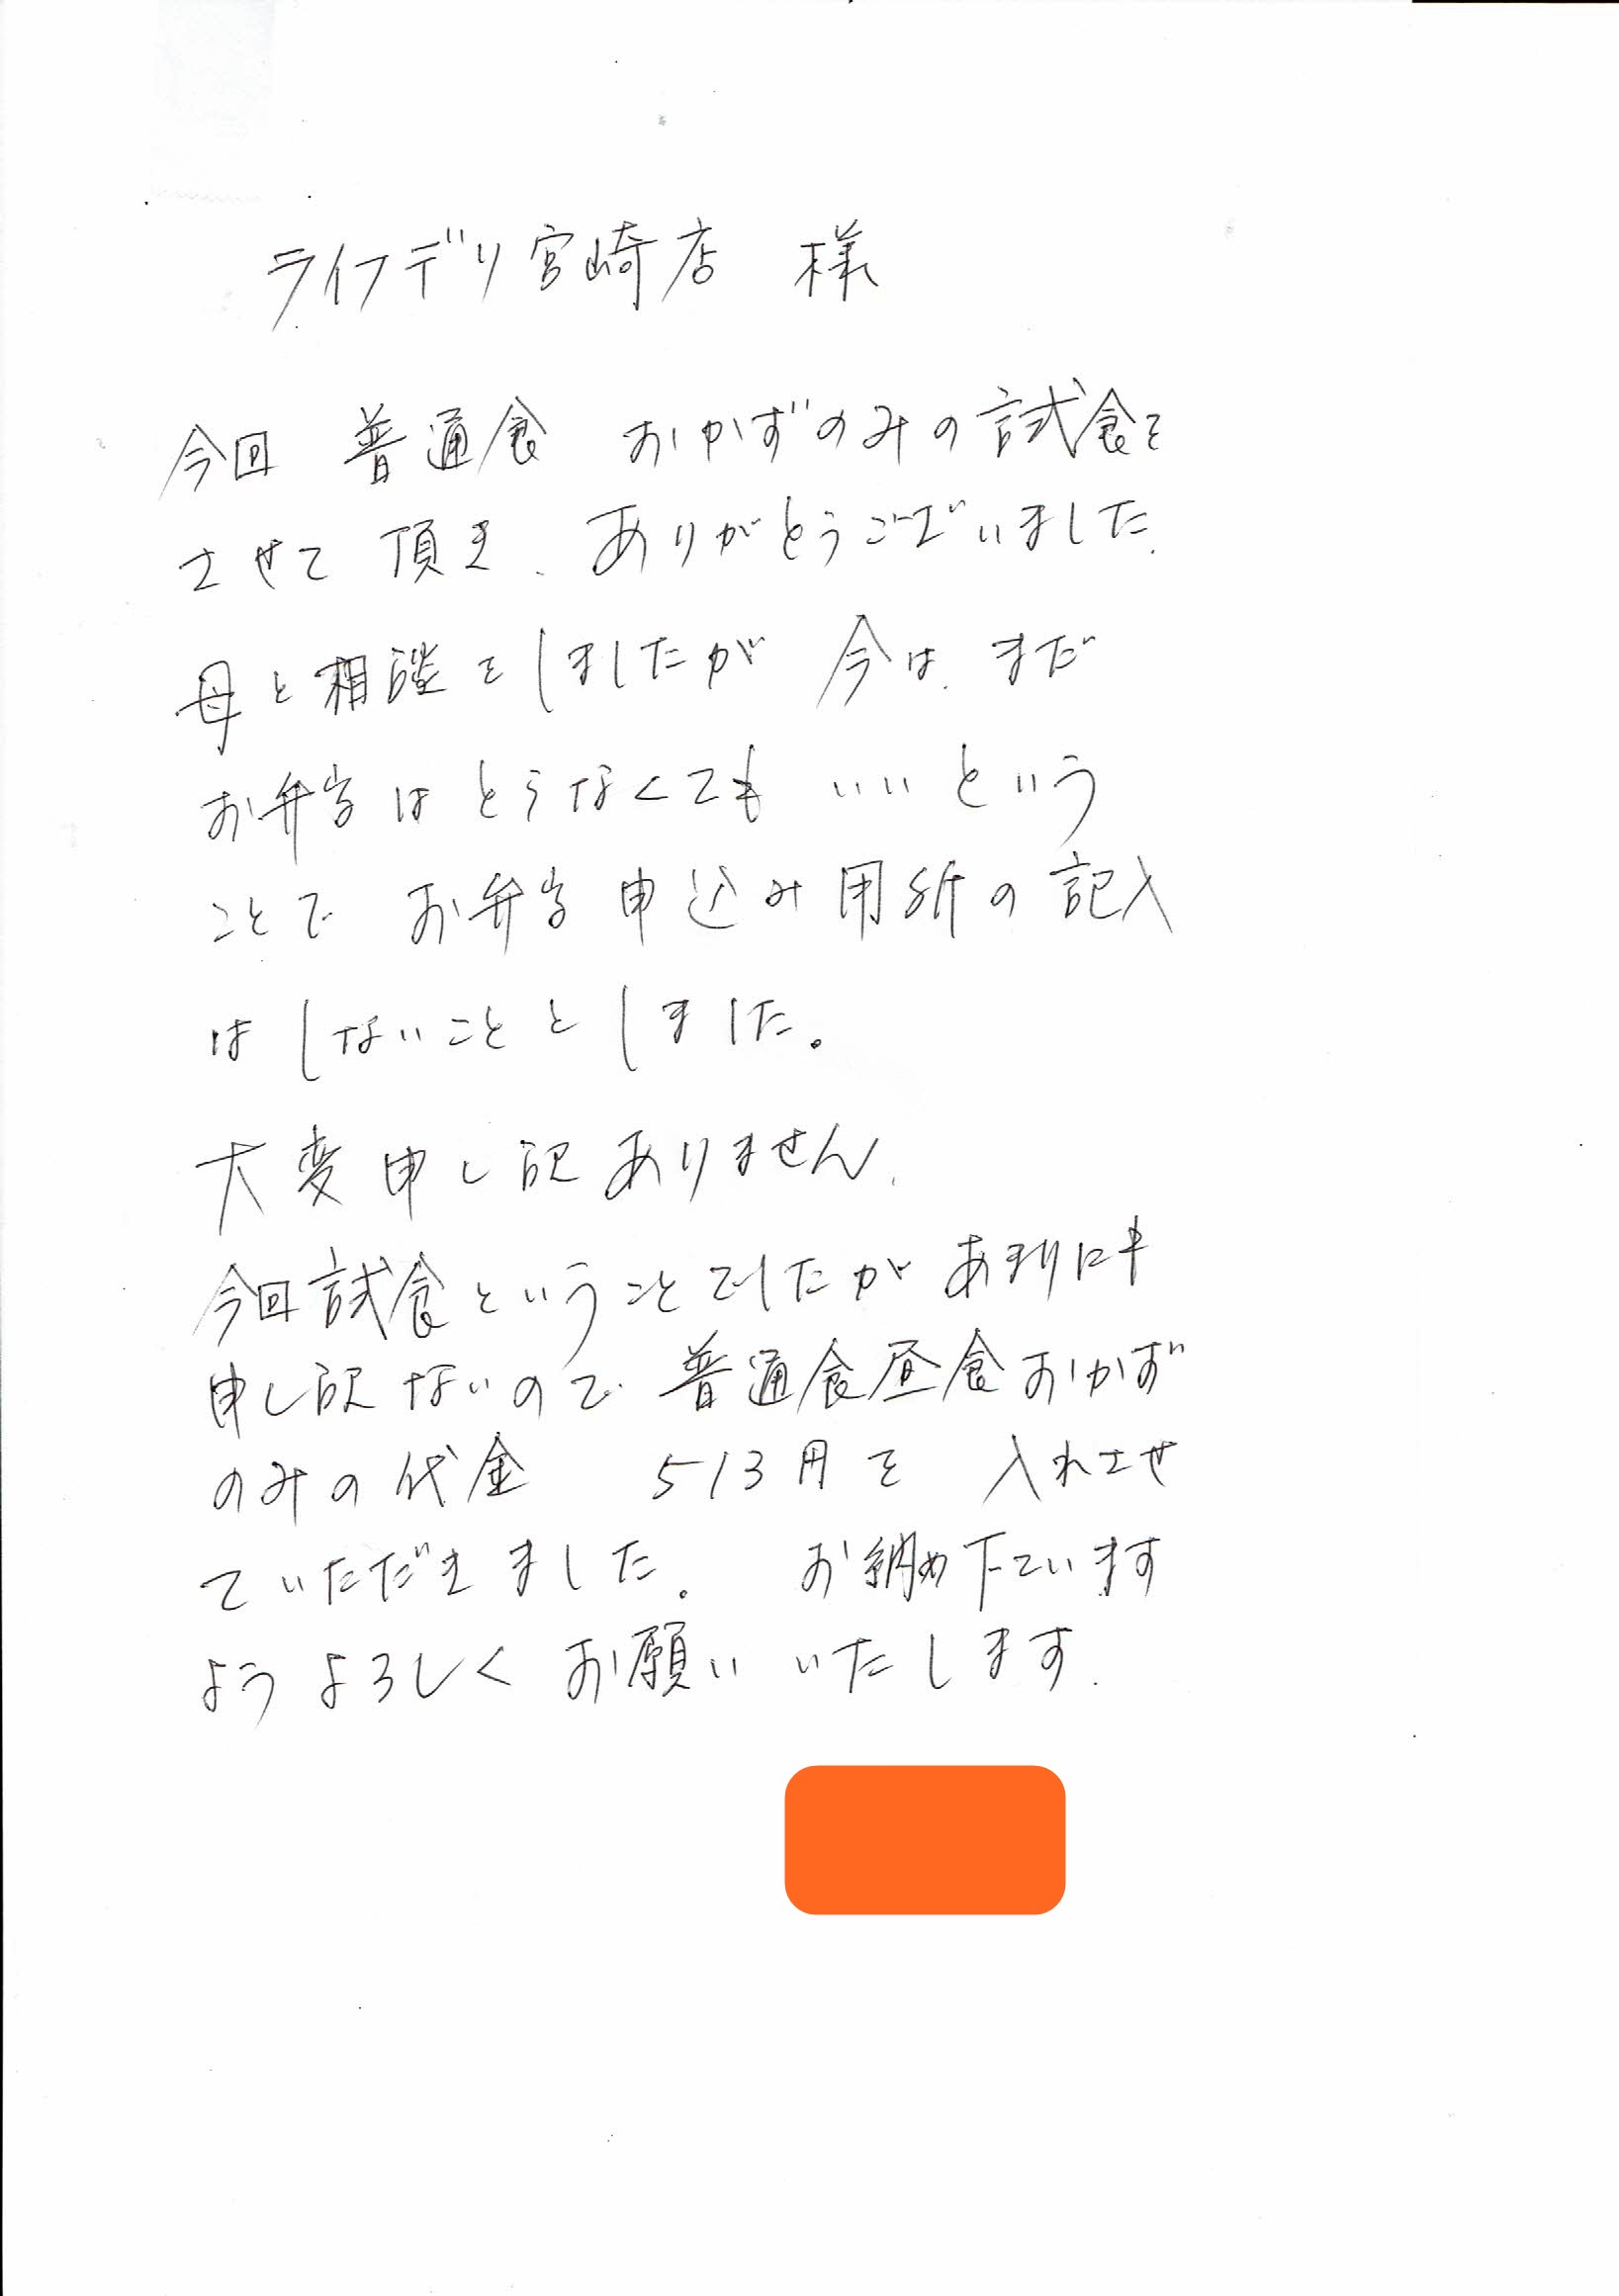 ライフデリ宮崎店 様
今回 普通食 おかずのみの試食を
させて頂き、ありがとうございました。
母と相談をしましたが 今は、まだ
お弁当はとらなくても いいという
ことで お弁当申込み用紙の記入
はしないこととしました。
大変申し訳ありません。
今回試食ということでしたがあまりにも
申し訳ないので 普通食昼食おかず
のみの代金 513円を 入れさせ
ていただきました。 お納め下さいます
ようよろしくお願いいたします。